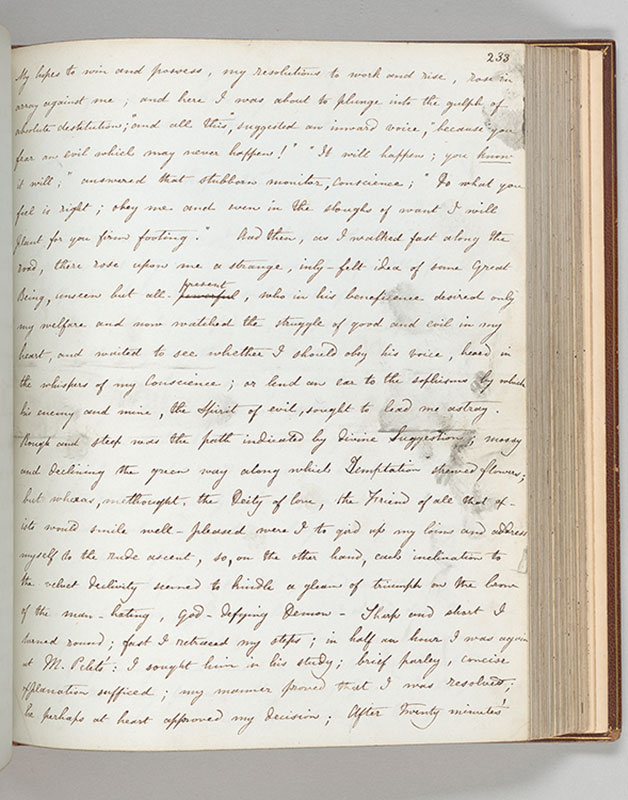 233
My hopes to win and possess, my resolutions to work and rise, rose in
array against me; and here I was about to plunge into the gulph of
absolute destitution; "and all this", suggested an inward voice, "because you
fear an evil which may never happen!" "It will happen; you know
it will;" answered that stubborn monitor, Conscience; "Do what you
feel is right; obey me and even in the sloughs of want I will
plant for you firm footing." And then, as I walked fast along the
road, there rose upon me a strange, inly-felt idea of some Great
Being, unseen but all-powerful present, who in his beneficence desired only
my welfare and now watched the struggle of good and evil in my
heart, and waited to see whether I should obey his voice, heard in
the whispers of my Conscience; or lend an ear to the sophisms by which
his enemy and mine, the Spirit of evil, sought to lead me astray.
Rough and steep was the path indicated by divine Suggestion; mossy
and declining the green way along which Temptation strewed flowers;
but whereas, methought, the Deity of love, the Friend of all that ex-
ists would smile well-pleased were I to gird up my loins and address
myself to the rude ascent, so, on the other hand, each inclination to
the velvet declivity seemed to kindle a gleam of triumph on the brow
of the man-hating, God-defying Demon - Sharp and short I
turned round; fast I retraced my steps; in half an hour I was again
at M. Pelet's: I sought him in his study; brief parley, concise
explanation sufficed; my manner proved that I was resolved;
he perhaps at heart approved my decision; After Twenty minutes'